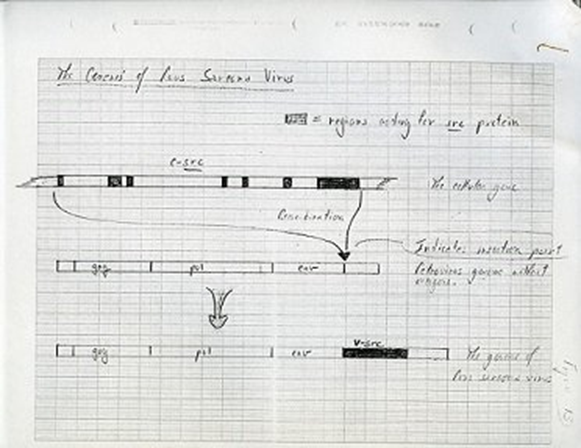 The Genesis of Rous Sarcoma Virus
= regions coding for src protein
c-src
The cellular gene
Recombination
Indicates insertion point
gag pol env
Retrovirus genome without
oncogene.
v-src
gag pol env
The genome of
Rous sarcoma virus